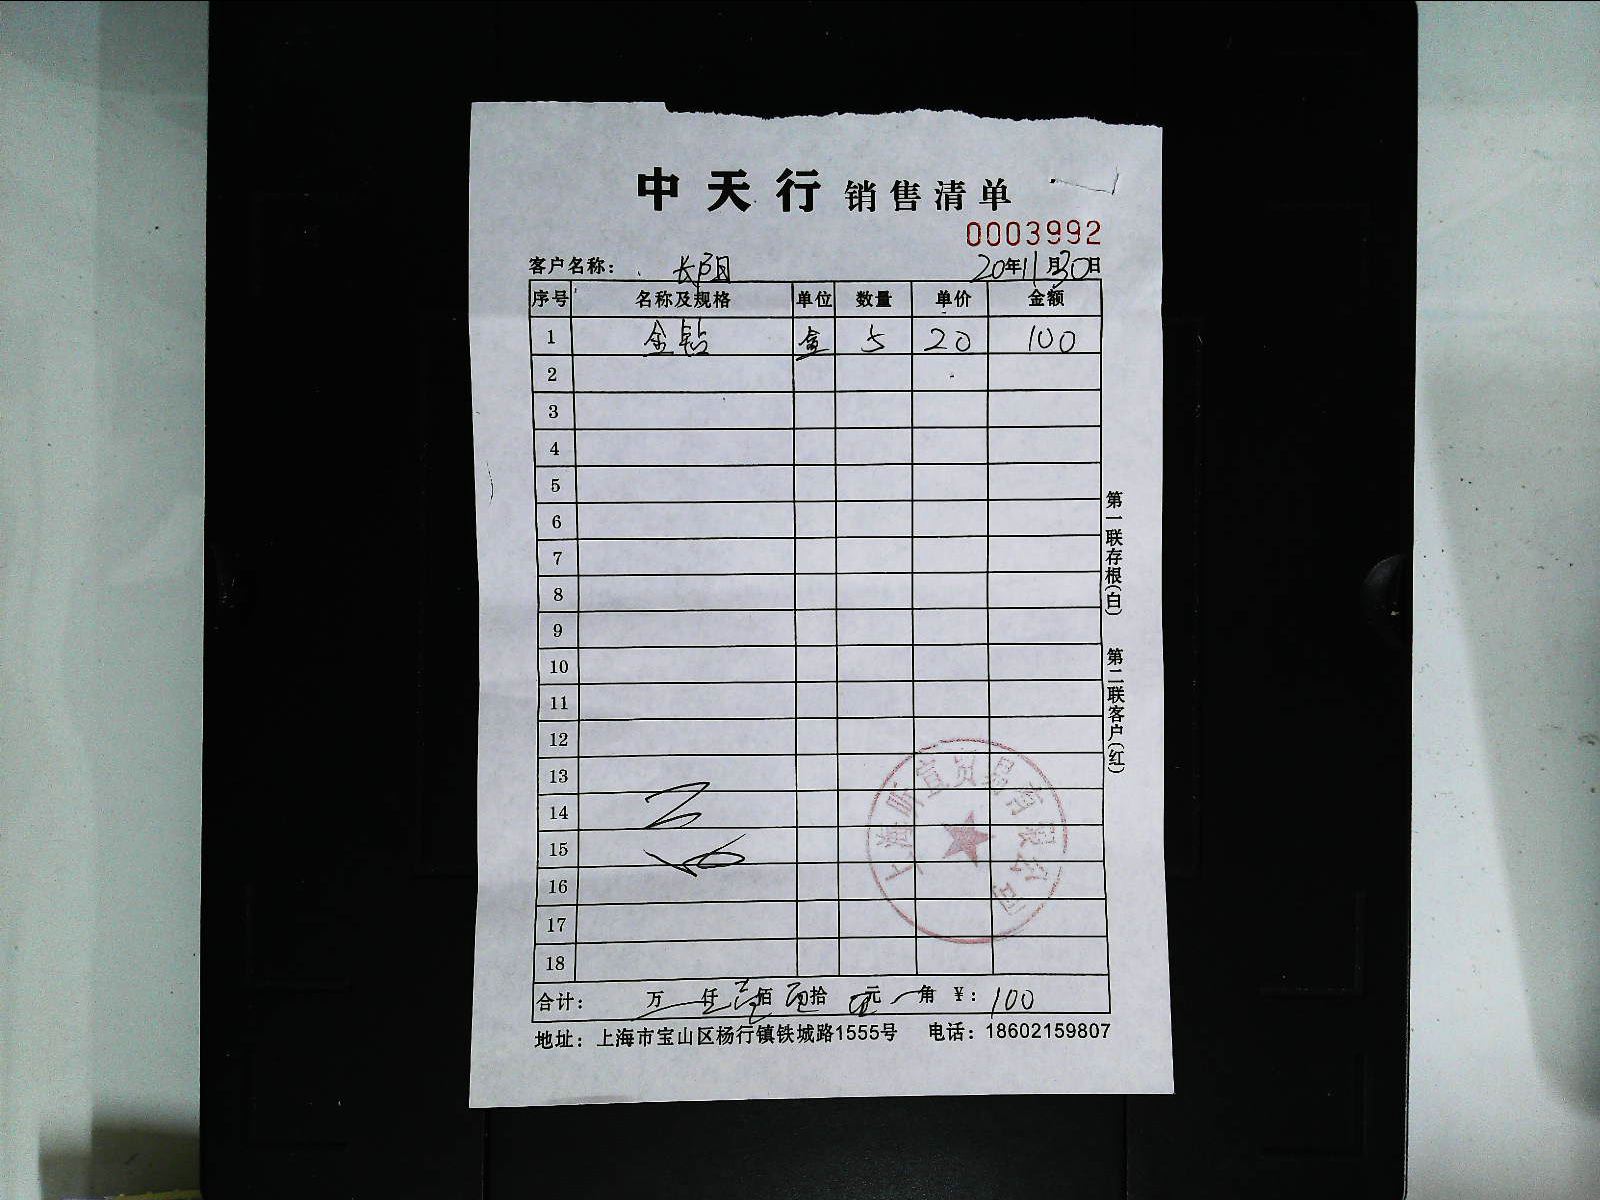 中天行 销售清单
0003992
客户名称： 长阳 20年11月30日
序号 名称及规格 单位 数量 单价 金额
1 金钻 盒 5 20 100
2
3
4
5
6
7
8
9
10
11
12
13
14
15
16
17
18
合计： 万 仟 壹佰 拾 元 角 ¥： 100
地址：上海市宝山区杨行镇铁城路1555号 电话：18602159807
第一联存根(白) 第二联客户(红)
上海昕宣贸易有限公司